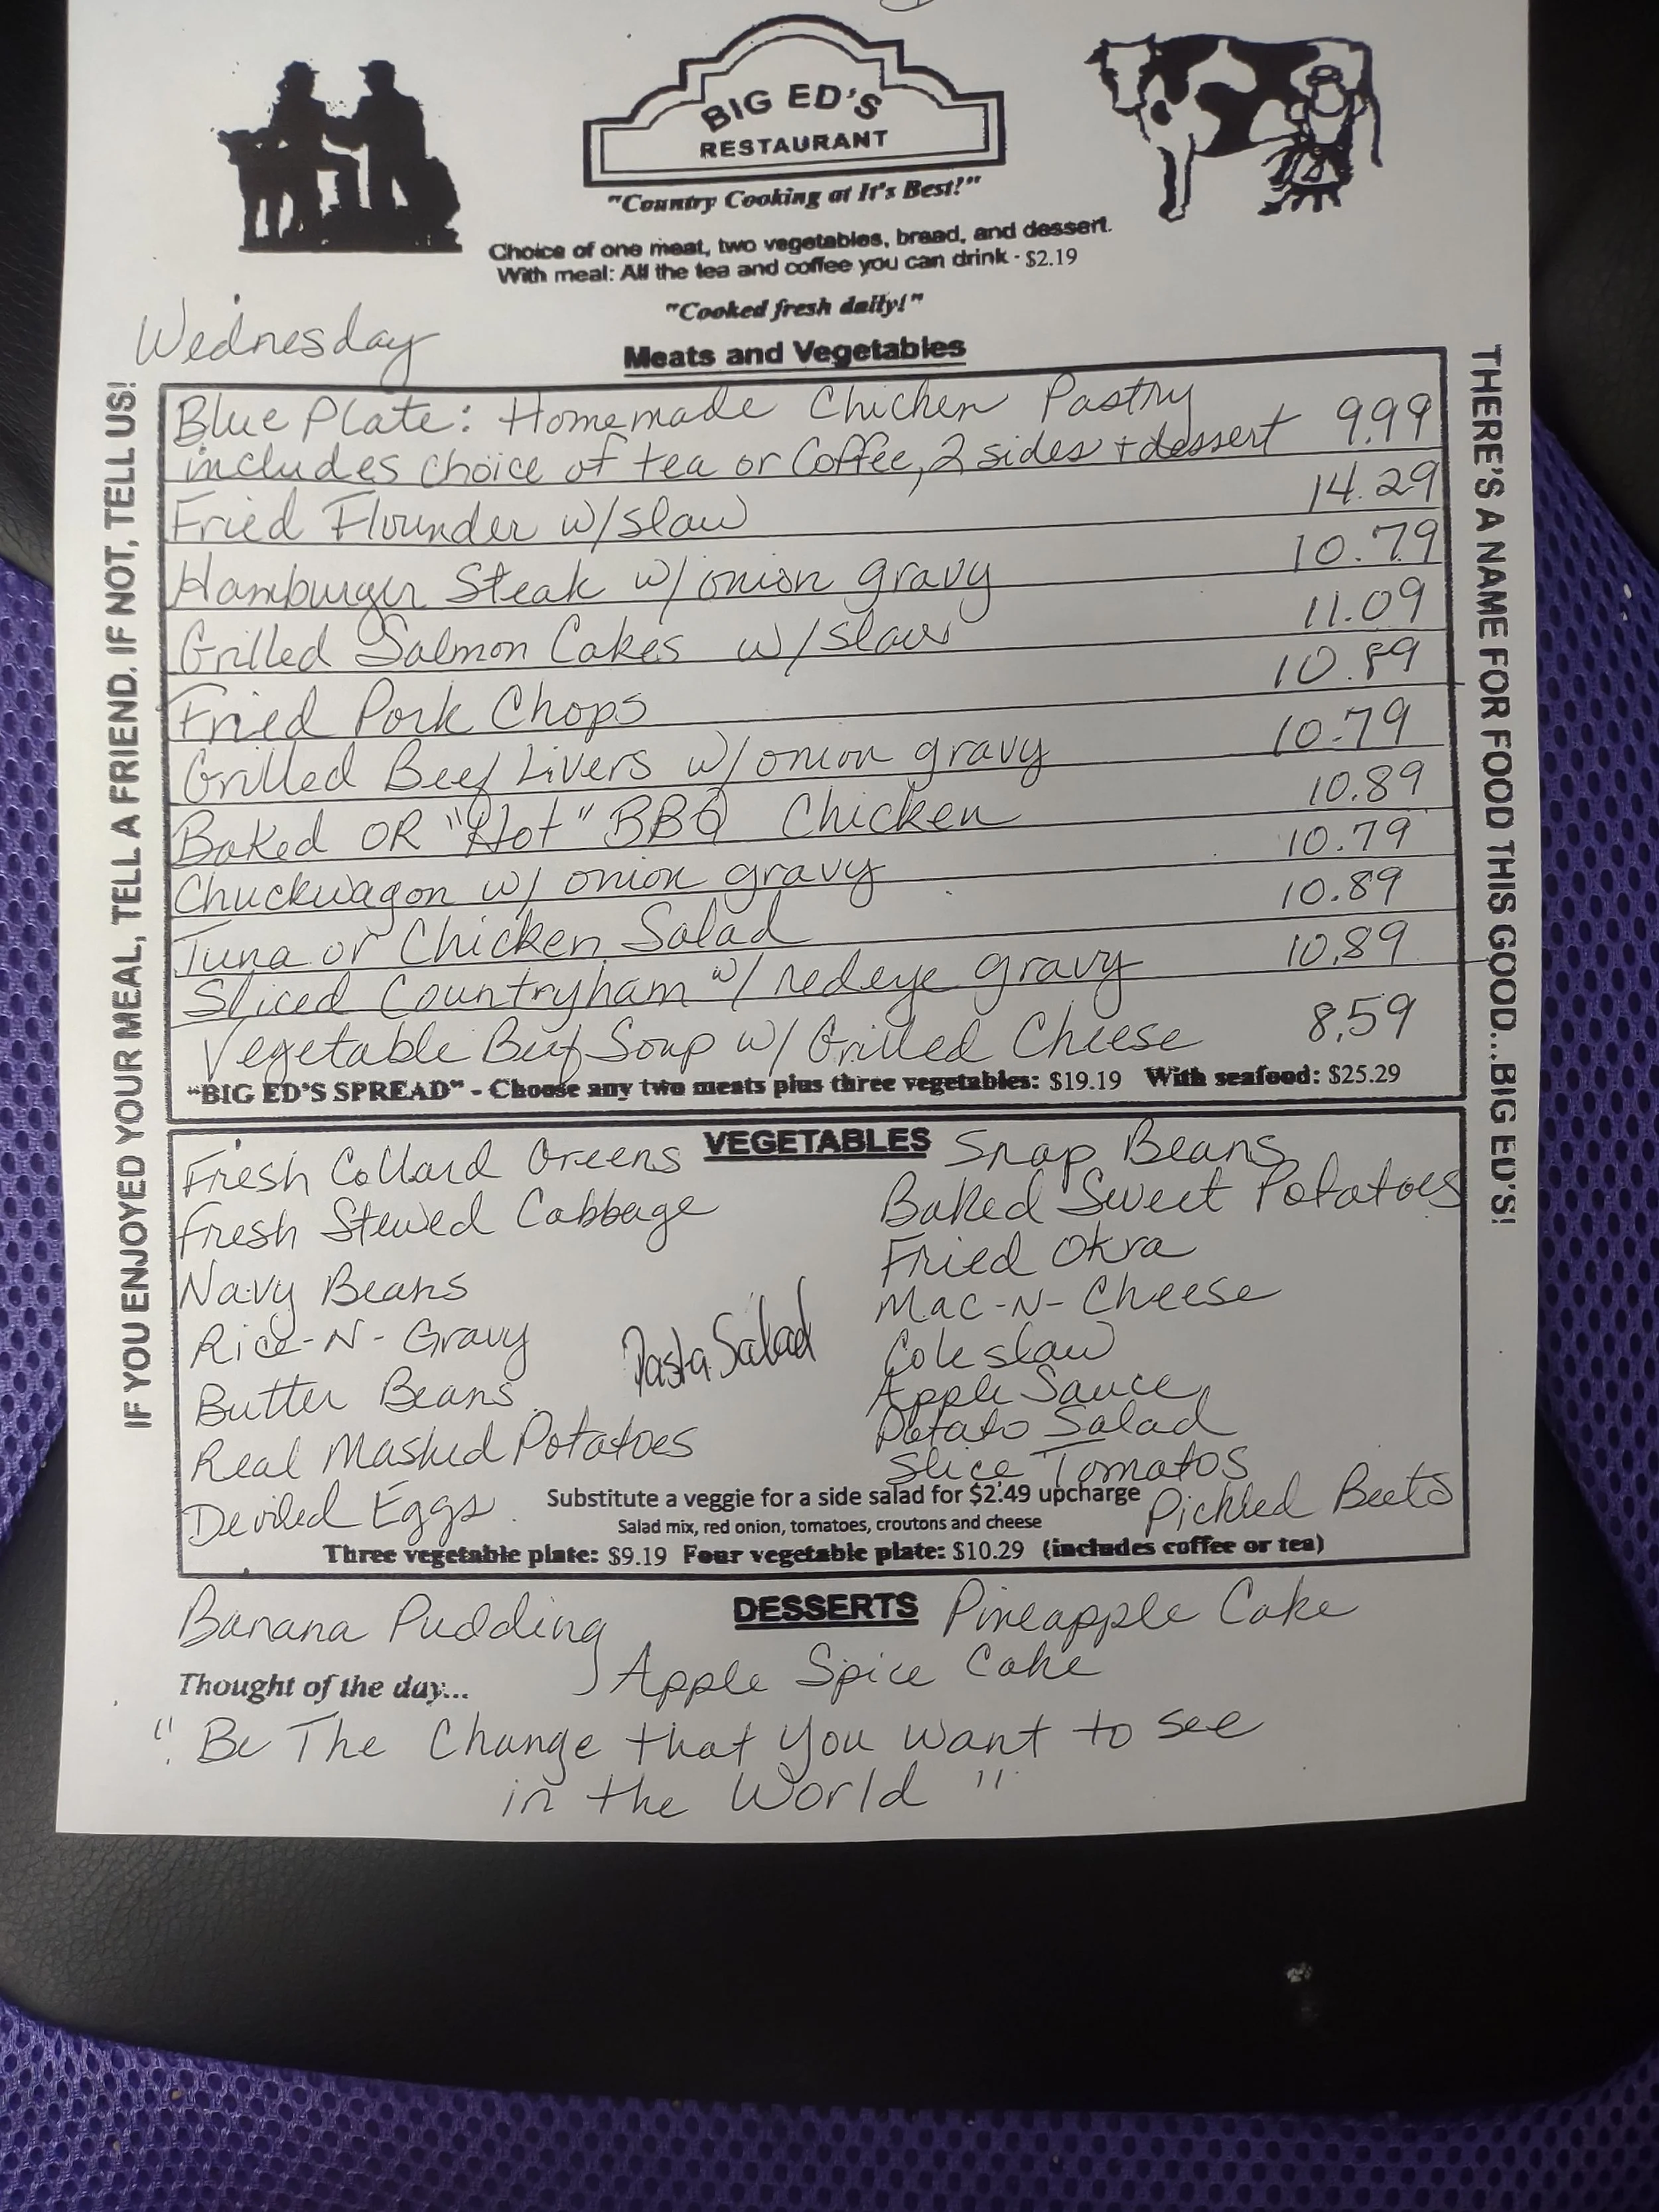 BIG ED'S
RESTAURANT
"Country Cooking at It's Best!"
Choice of one meat, two vegetables, bread, and dessert.
With meal: All the tea and coffee you can drink - $2.19
"Cooked fresh daily!"
Wednesday
Meats and Vegetables
IF YOU ENJOYED YOUR MEAL, TELL A FRIEND. IF NOT, TELL US!
THERE'S A NAME FOR FOOD THIS GOOD...BIG ED'S!
Blue Plate: Homemade Chicken Pastry
includes choice of tea or Coffee, 2 sides + dessert 9.99
Fried Flounder w/slaw 14.29
Hamburger Steak w/ onion gravy 10.79
Grilled Salmon Cakes w/slaw 11.09
Fried Pork Chops 10.89
Grilled Beef Livers w/ onion gravy 10.79
Baked OR "Hot" BBQ Chicken 10.89
Chuckwagon w/ onion gravy 10.79
Tuna or Chicken Salad 10.89
Sliced Countryham w/ redeye gravy 10.89
Vegetable Beef Soup w/ Grilled Cheese 8.59
"BIG ED'S SPREAD" - Choose any two meats plus three vegetables: $19.19 With seafood: $25.29
VEGETABLES
Fresh Collard Greens
Fresh Stewed Cabbage
Navy Beans
Rice-N-Gravy
Butter Beans
Real Mashed Potatoes
Deviled Eggs
Pasta Salad
Snap Beans
Baked Sweet Potatoes
Fried Okra
Mac-N-Cheese
Coleslaw
Apple Sauce
Potato Salad
Slice Tomatos
Pickled Beets
Substitute a veggie for a side salad for $2.49 upcharge
Salad mix, red onion, tomatoes, croutons and cheese
Three vegetable plate: $9.19 Four vegetable plate: $10.29 (includes coffee or tea)
DESSERTS
Banana Pudding
Pineapple Cake
Apple Spice Cake
Thought of the day...
"Be The Change that you want to see
in the World"